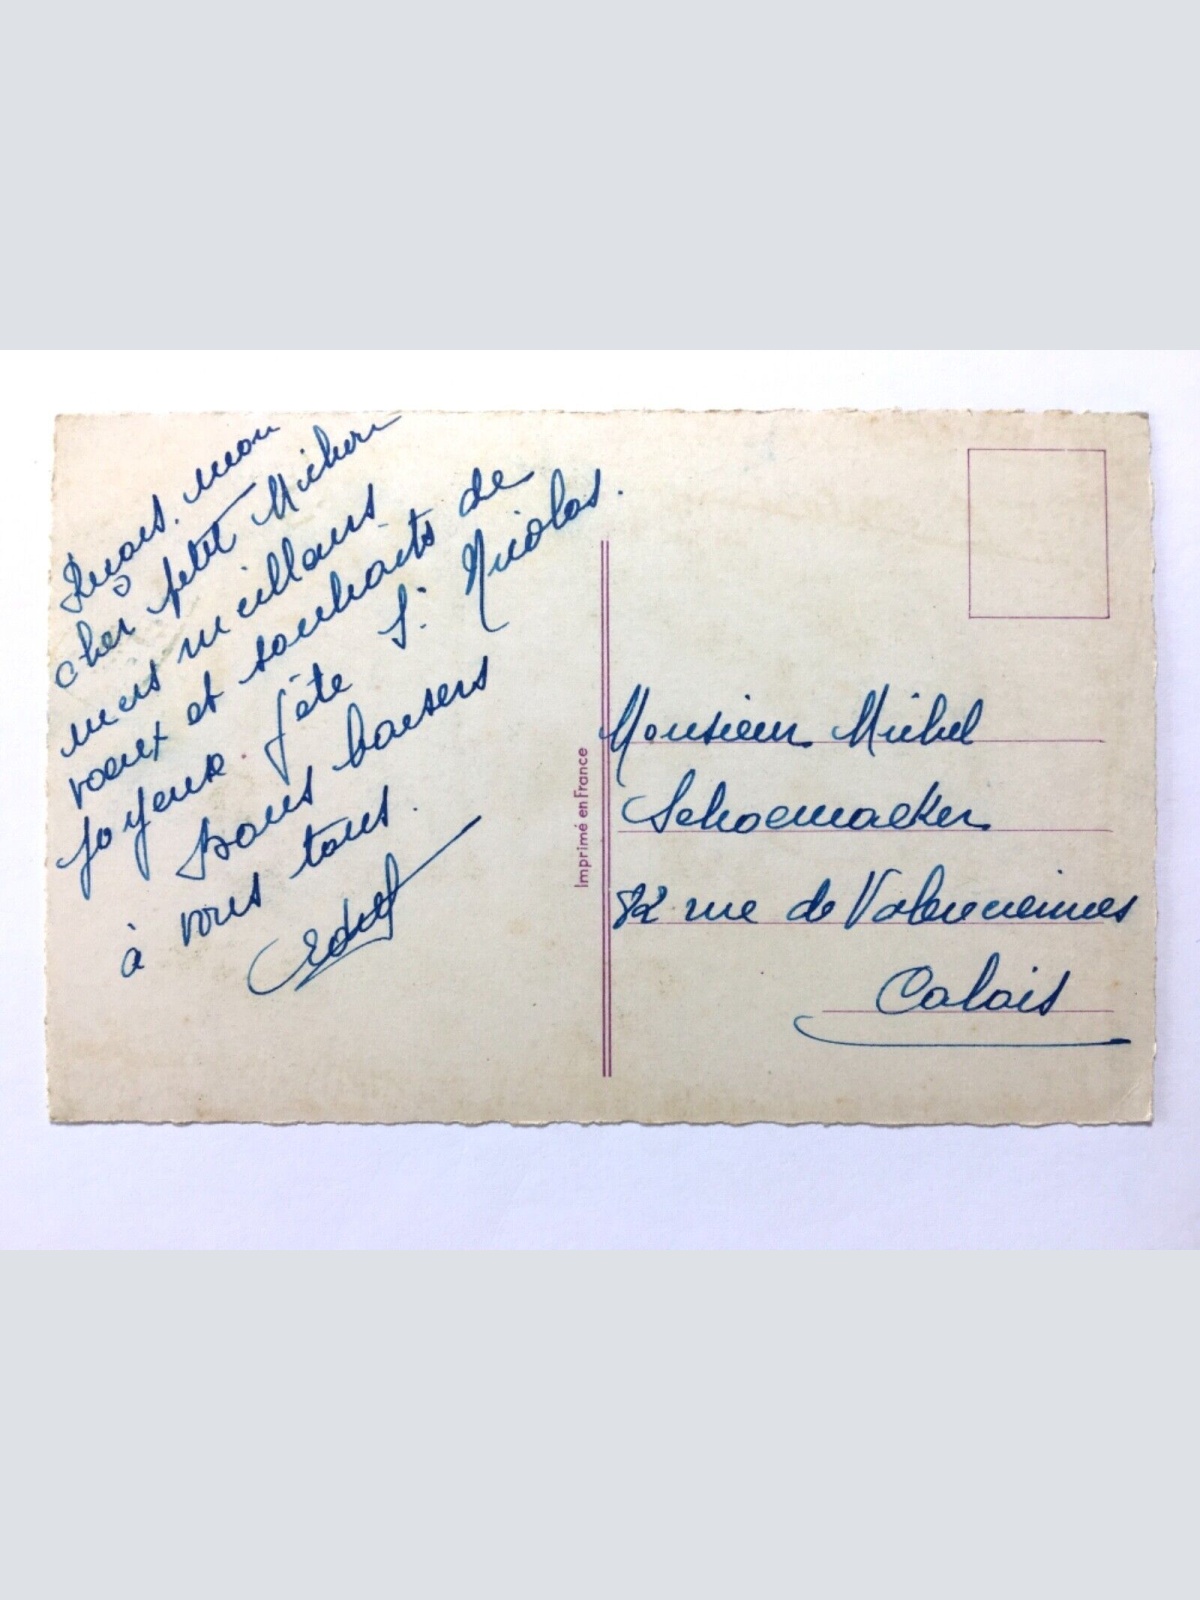 mon
cher petit Michou
mes meilleurs
vœux et souhaits de
joyeuse fête S. Nicolas.
Bons baisers
à vous tous.
Imprimé en France
Monsieur Michel
Schoemacker
82 rue de Valenciennes
Calais